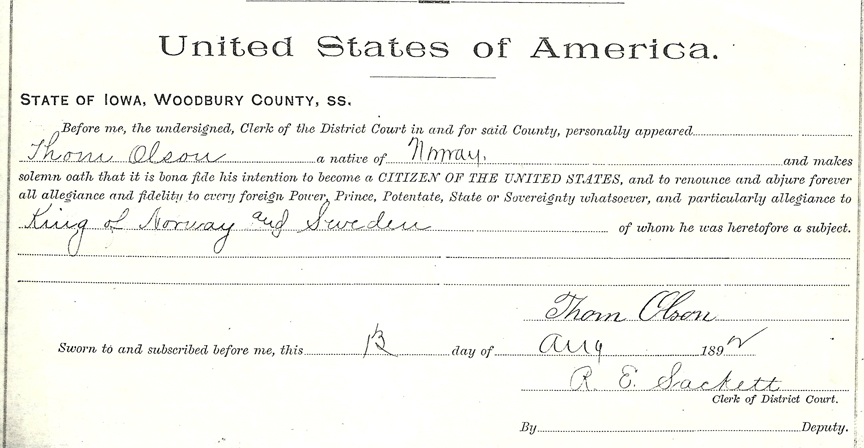 United States of America.
STATE OF IOWA, WOODBURY COUNTY, SS.
Before me, the undersigned, Clerk of the District Court in and for said County, personally appeared
Thom Olson a native of Norway. and makes
solemn oath that it is bona fide his intention to become a CITIZEN OF THE UNITED STATES, and to renounce and abjure forever
all allegiance and fidelity to every foreign Power, Prince, Potentate, State or Sovereignty whatsoever, and particularly allegiance to
King of Norway and Sweden of whom he was heretofore a subject.
Thom Olson
Sworn to and subscribed before me, this 13 day of Aug 1892
R. E. Sackett
Clerk of District Court.
By Deputy.